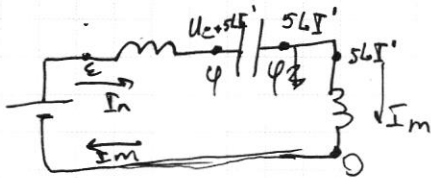 U_c+5LI' 5LI'
ε φ φ 5LI'
I_n I_m
I_m 0